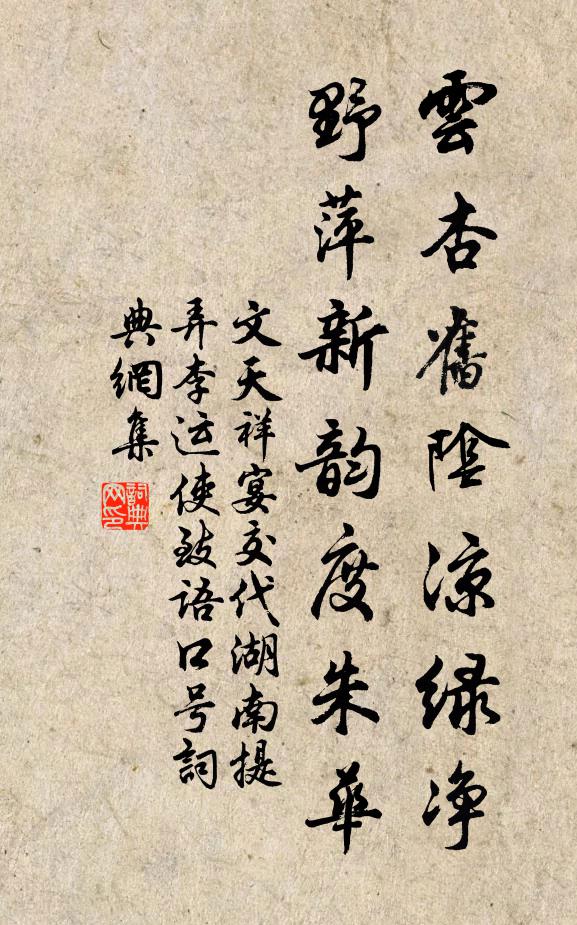 雲杏舊陰涼绿净
野萍新韵度朱華
文天祥宴交代湖南提
弄李运使致语口号詞
典網集
詞典
网印